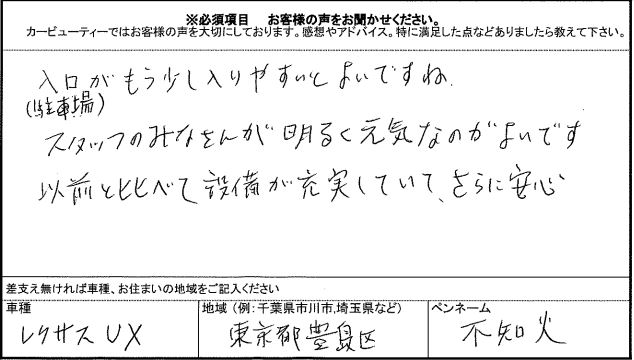 ※必須項目 お客様の声をお聞かせください。
カービューティーではお客様の声を大切にしております。感想やアドバイス。特に満足した点などありましたら教えて下さい。
入口がもう少し入りやすいとよいですね.
(駐車場)
スタッフのみなさんが明るく元気なのがよいです
以前と比べて設備が充実していて、さらに安心
差支え無ければ車種、お住まいの地域をご記入ください
車種
地域 (例:千葉県市川市,埼玉県など)
ペンネーム
レクサスUX
東京都豊島区
不知火